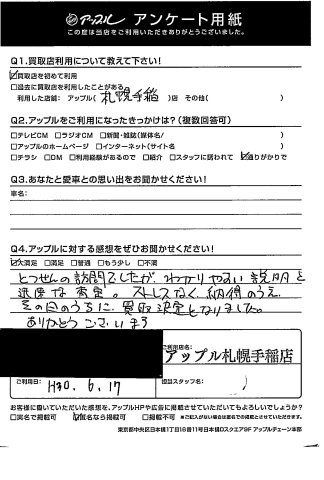 アップル アンケート用紙
この度は当店をご利用いただきありがとうございました。
Q1.買取店利用について教えて下さい!
☑買取店を初めて利用
□過去に買取店を利用したことがある
利用した店舗: アップル( 札幌手稲 )店 その他( )
Q2.アップルをご利用になったきっかけは?(複数回答可)
□テレビCM □ラジオCM □新聞・雑誌(媒体名/ )
□アップルのホームページ □インターネット(サイト名 )
□チラシ □DM □利用経験があるので □紹介 □スタッフに誘われて ☑通りがかりで
Q3.あなたと愛車との思い出をお聞かせください!
車名:
Q4.アップルに対する感想をぜひお聞かせください!
☑大満足 □満足 □普通 □もう少し □不満
とつぜんの訪問でしたが、わかりやすい説明と
迅速な査定。ストレスなく、納得のうえ、
その日のうちに買取決定となりました。
ありがとうございます
ご利用店名:
アップル札幌手稲店
ご利用日: H30.6.17
担当スタッフ名:
お客様に書いていただいた感想を、アップルHPや広告に掲載させていただいてもよろしいでしょうか?
□実名で掲載可 ☑匿名なら掲載可 □掲載不可 ※ご記入がない場合は匿名での掲載とさせていただきます。
東京都中央区日本橋1丁目16番11号日本橋Dスクエア9F アップルチェーン本部